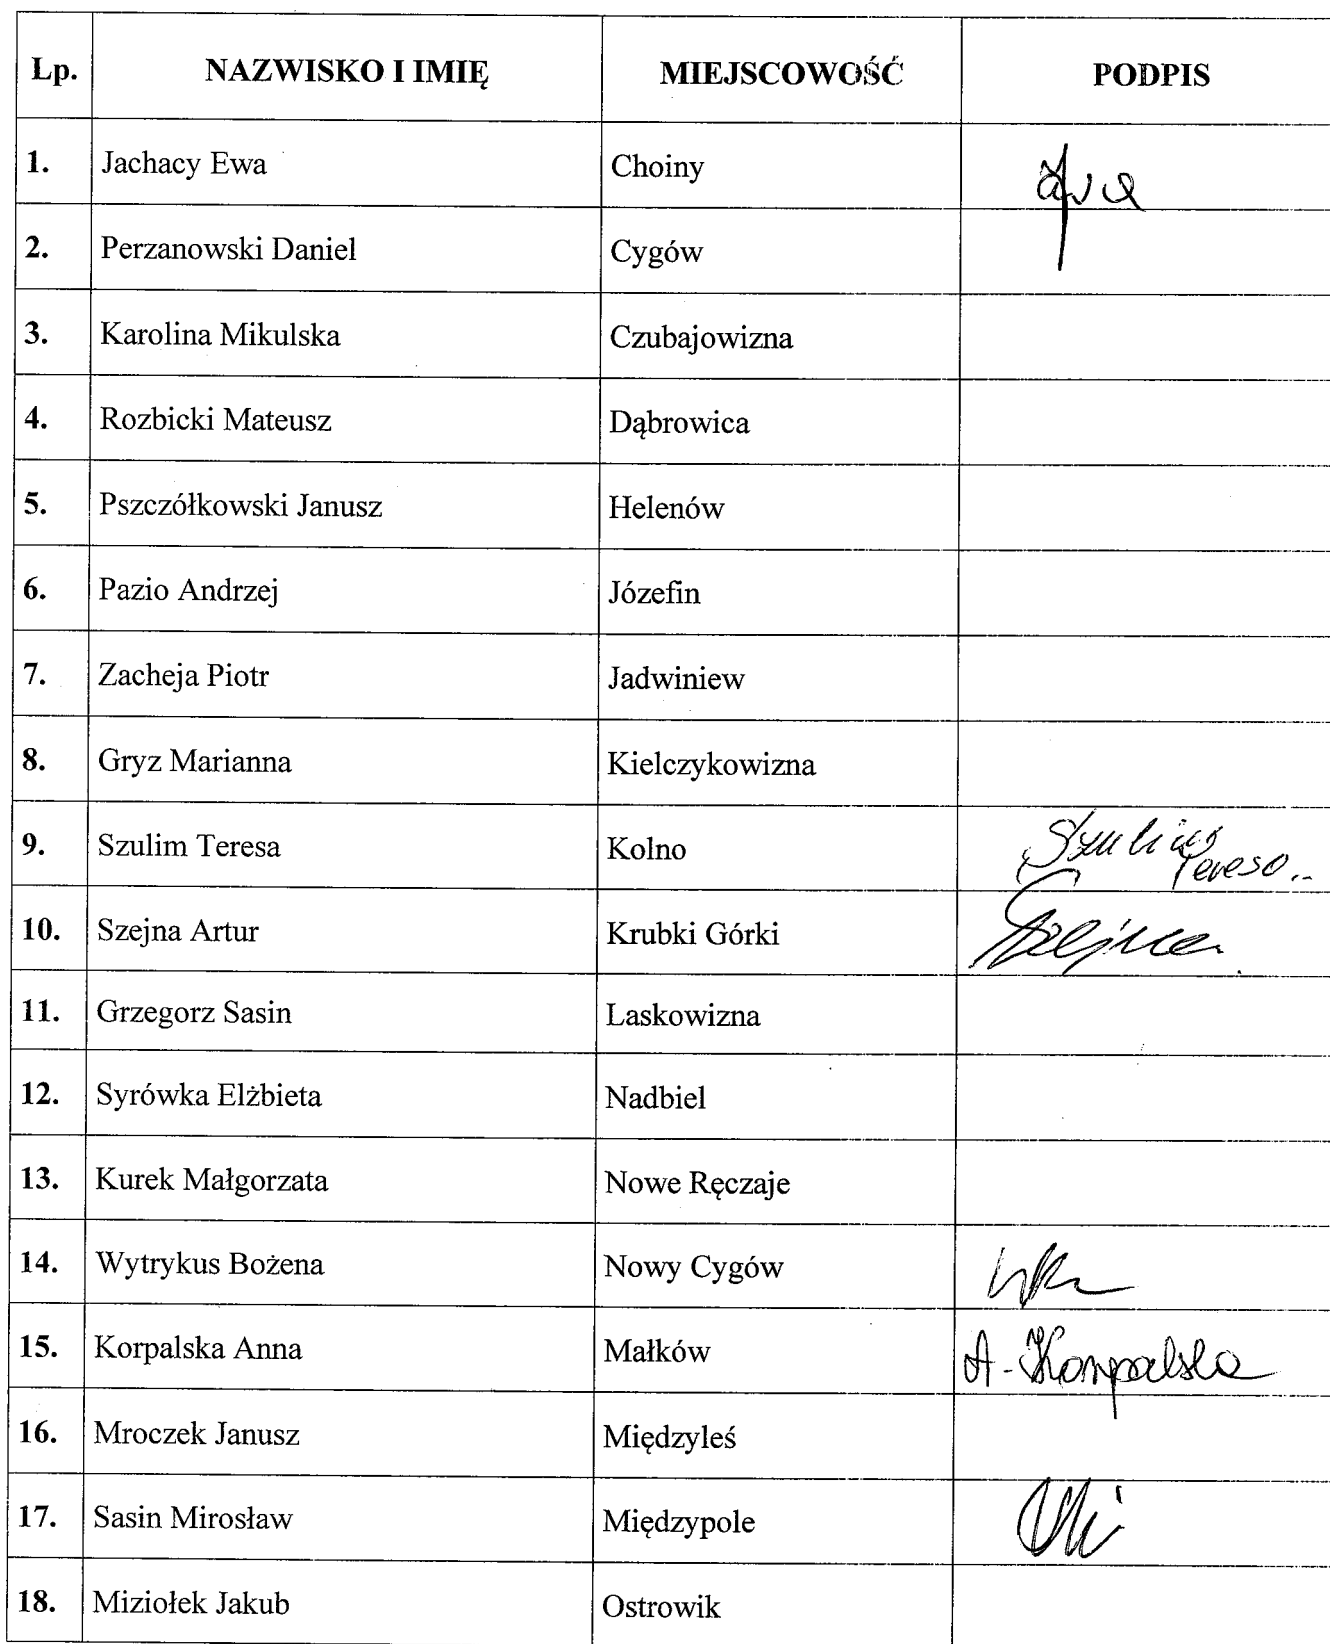 Lp. NAZWISKO I IMIĘ MIEJSCOWOŚĆ PODPIS
1. Jachacy Ewa Choiny
2. Perzanowski Daniel Cygów
3. Karolina Mikulska Czubajowizna
4. Rozbicki Mateusz Dąbrowica
5. Pszczółkowski Janusz Helenów
6. Pazio Andrzej Józefin
7. Zacheja Piotr Jadwiniew
8. Gryz Marianna Kielczykowizna
9. Szulim Teresa Kolno Szulim Teresa..
10. Szejna Artur Krubki Górki Szejna
11. Grzegorz Sasin Laskowizna
12. Syrówka Elżbieta Nadbiel
13. Kurek Małgorzata Nowe Ręczaje
14. Wytrykus Bożena Nowy Cygów
15. Korpalska Anna Małków A. Korpalska
16. Mroczek Janusz Międzyleś
17. Sasin Mirosław Międzypole
18. Miziołek Jakub Ostrowik